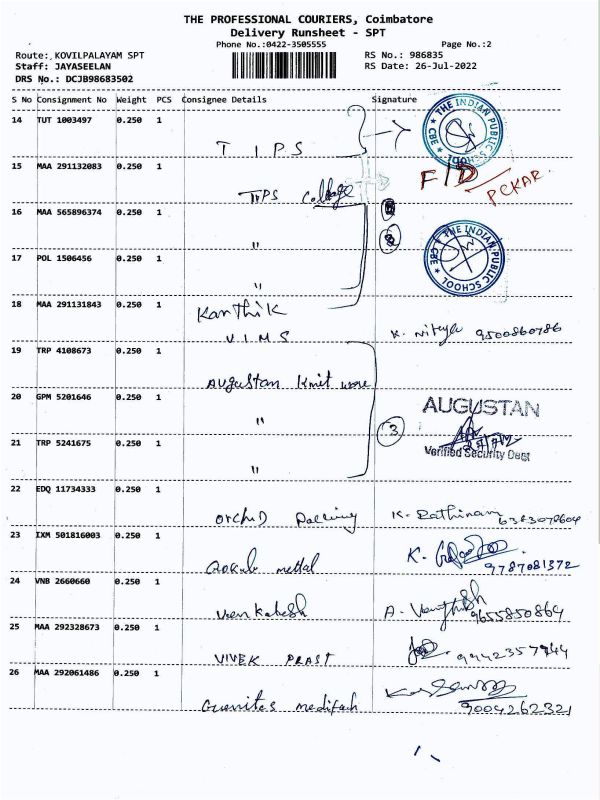 THE PROFESSIONAL COURIERS, Coimbatore
Delivery Runsheet - SPT
Phone No.:0422-3505555
Page No.:2
Route: KOVILPALAYAM SPT
RS No.: 986835
Staff: JAYASEELAN
RS Date: 26-Jul-2022
DRS No.: DCJB98683502
S No Consignment No Weight PCS Consignee Details Signature
14 TUT 1003497 0.250 1
THE INDIAN PUBLIC SCHOOL
CBE
T I P S
15 MAA 291132083 0.250 1
TIPS College
16 MAA 565896374 0.250 1
"
THE INDIAN PUBLIC SCHOOL
CBE
17 POL 1506456 0.250 1
"
18 MAA 291131843 0.250 1
Karthik
V I M S
K. Nitya 9500860786
19 TRP 4108673 0.250 1
Augustan Knit wore
20 GPM 5201646 0.250 1
"
3
AUGUSTAN
Verified Security Dept
21 TRP 5241675 0.250 1
"
22 EDQ 11734333 0.250 1
Orchid
K. Rathinam 6383078604
23 IXM 501816003 0.250 1
K.
9787081372
24 VNB 2660660 0.250 1
Venkatesh
A.
9655850864
25 MAA 292328673 0.250 1
VIVEK PRAST
9442357944
26 MAA 292061486 0.250 1
9004262321